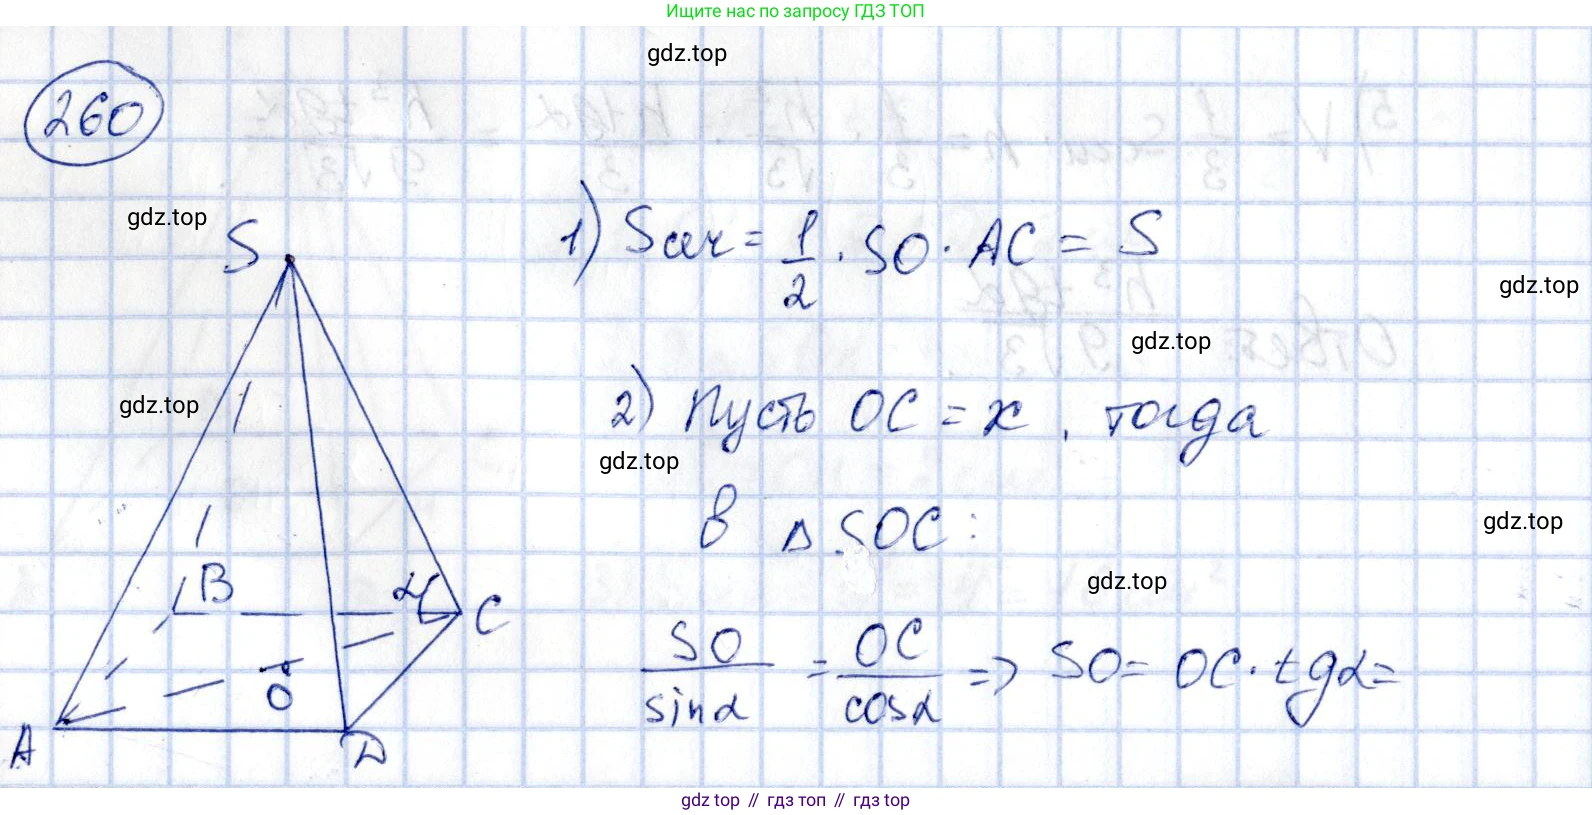 Ищите нас по запросу ГДЗ ТОП
gdz.top
260
gdz.top
S
1) Sсеч = 1/2 · SO · AC = S
gdz.top
gdz.top
gdz.top
2) Пусть OC = x, тогда
gdz.top
в △SOC:
gdz.top
B
α
C
gdz.top
SO/sinα = OC/cosα => SO = OC · tgα =
O
A
D
gdz.top // гдз топ // гдз top